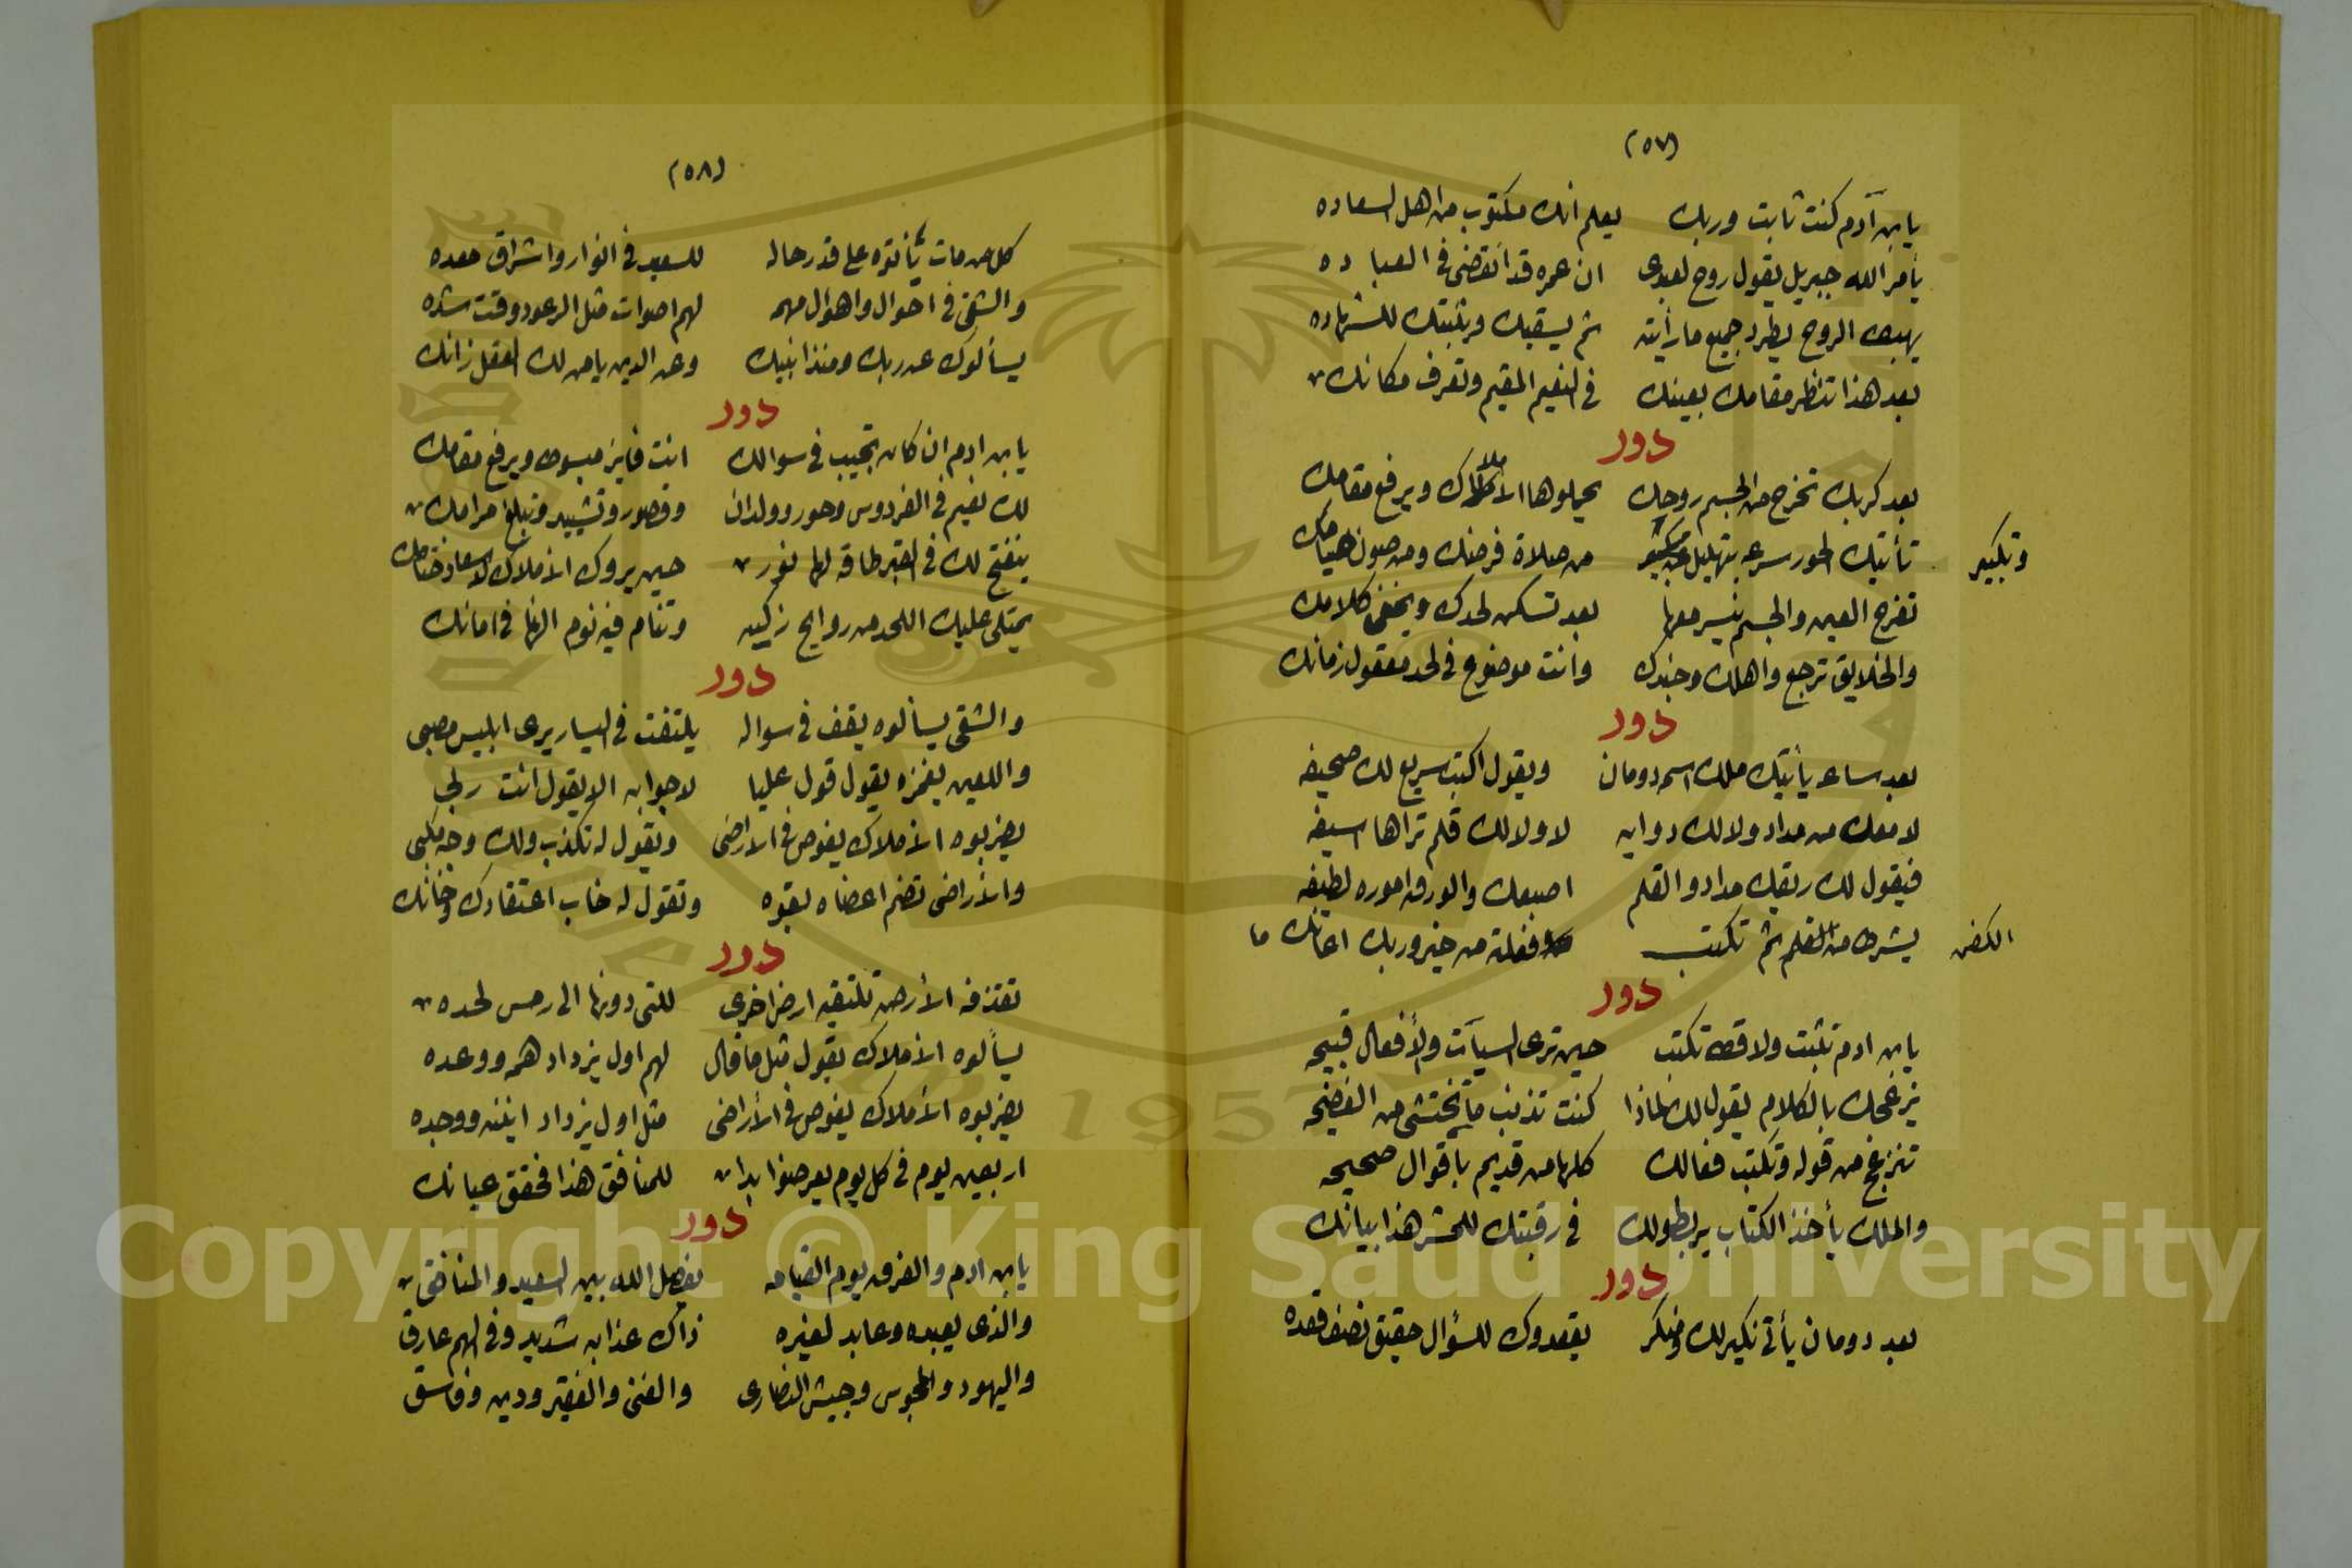 (٥٧)
يابن آدم كنت ثابت وربك يعلم انك مكتوب من اهل السعاده
يأمر الله جبريل يقول روح لعبدى ان عمره قد انقضى فى العباده
يهبط الروح يطرد جميع ما رأيته ثم يسقيك ويثبتك للشهاده
بعد هذا تنظر مقامك بعينك فى النعيم المقيم وتعرف مكانك
دور
بعد كربك تخرج من الجسم روحك يحملوها الاملاك ويرفع مقامك
تأتيك الحور سرعه بتهليل وتكبير من صلاة فرضك ومن صون صيامك
تفرح العين والجسم يسير معها بعد تسكن لحدك ويخفى كلامك
والخلايق ترجع واهلك وجندك وانت موضوع فى لحد معقول زمانك
دور
بعد ساعه يأتيك ملك اسمه دومان ويقول اكتب سريع لك صحيفه
لا معك من مداد ولا لك دوايه لا ولا لك قلم تراها اسيفه
فيقول لك ريقك مداد والقلم اصبعك والورق اموره لطيفه
يشرط من الكفن ثم تكتب ما فعلته من خير وربك اعانك
دور
يابن ادم تثبت ولا قط تكتب حين ترى السيآت والأفعال قبيحه
يزعجك بالكلام يقول لك لماذا كنت تذنب ما تختشى من الفضيحه
تنزعج من قوله وتكتب فعالك كلها من قديم باقوال صحيحه
والملك يأخذ الكتاب يربطه لك فى رقبتك للحشر هذا بيانك
دور
بعد دومان يأتى نكير لك ومنكر يقعدوك للسؤال حقيق نصف قعده
(٥٨)
كل من مات يأتوه على قدر حاله للسعيد فى انوار واشراق معده
والشقى فى احوال واهوال مهمه لهم اصوات مثل الرعود وقت شده
يسألوك عن ربك ومنذا نبيك وعن الدين يا من لك العقل زانك
دور
يابن ادم ان كان تجيب فى سوالك انت فايز مبسوط ويرفع مقامك
لك نعيم فى الفردوس وحور وولدان وقصور وتشييد وتبلغ مرامك
ينفتح لك فى القبر طاقه لها نور حين يروك الاملاك لاسعاد ختامك
يمتلى عليك اللحد من روايح زكيه وتنام فيه نوم الهنا فى امانك
دور
والشقى يسألوه يقف فى سواله يلتفت فى اليسار يرى ابليس مصبى
واللعين يغمزه يقول قول عليا لا جوابه الا يقول انت ربى
يضربوه الأملاك يغوص فى الاراضى ويقول له تكذب ولك وجه مكبى
والأراضى تضم اعضاه بقوه وتقول له خاب اعتقادك وخانك
دور
تقتذفه الأرض تلتقيه ارض اخرى للتى دونها الى رمس لحده
يسألوه الأملاك يقول مثل ما قال لهم اول يزداد همه ووعده
يضربوه الأملاك يغوص فى الأراضى مثل اول يزداد انينه ووجده
اربعين يوم فى كل يوم يعرضوا بدا للمنافق هذا فحقق عيانك
دور
يابن ادم والفرق يوم القيامه يفصل الله بين السعيد والمنافق
والذى يعبده وعابد لغيره ذاك عذابه شديد وفى الهم عارق
واليهود والمجوس وجيش النصارى والغنى والفقير ودين وفاسق
وتكبير
الكفن
Copyright © King Saud University
1957